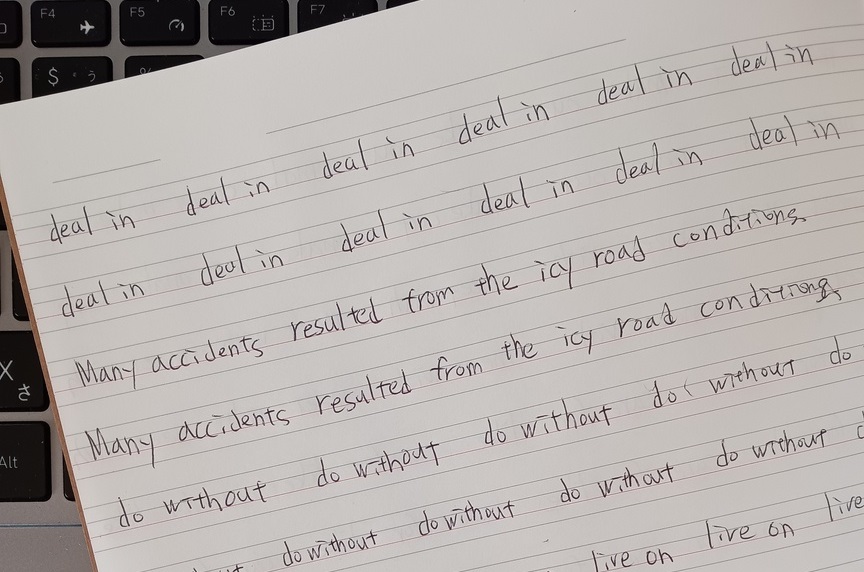 F4 F5 F6 F7
$ う %
deal in deal in deal in deal in deal in deal in
deal in deal in deal in deal in deal in deal in
Many accidents resulted from the icy road conditions
Many accidents resulted from the icy road conditions
do without do without do without do without do
do without do without do without do without
live on live on live
X さ
Alt